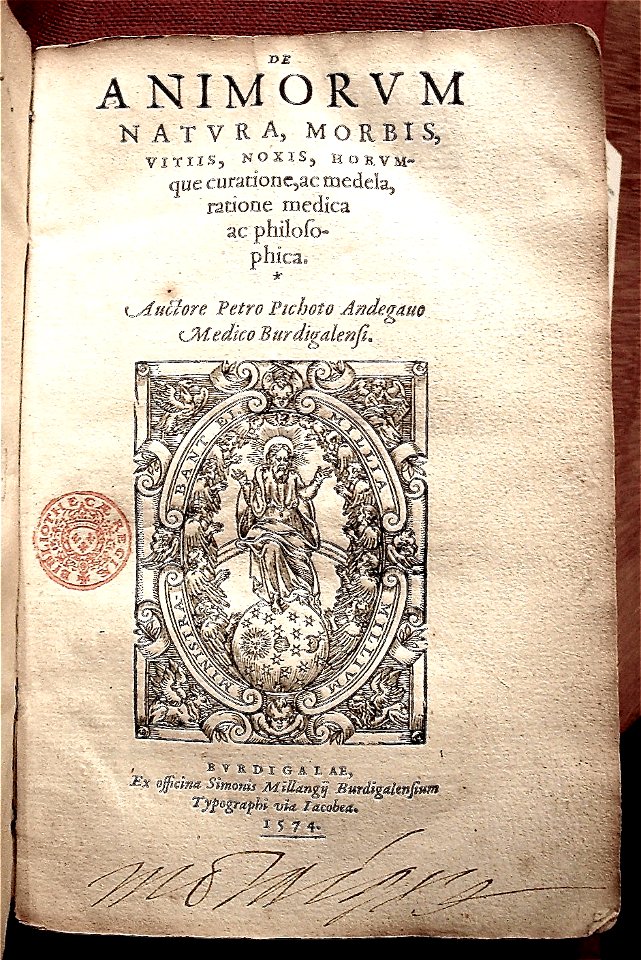 DE
ANIMORVM
NATVRA, MORBIS,
VITIIS, NOXIS, HORVM-
que curatione, ac medela,
ratione medica
ac philoſo-
phica.
*
Auctore Petro Pichoto Andegauo
Medico Burdigalenſi.
MINISTRA-
BANT EI
MILLIA
MILLIVM
BIBLIOTHECÆ REGIÆ
BVRDIGALAE,
Ex officina Simonis Millangij Burdigalenſium
Typographi via Iacobea.
1574.